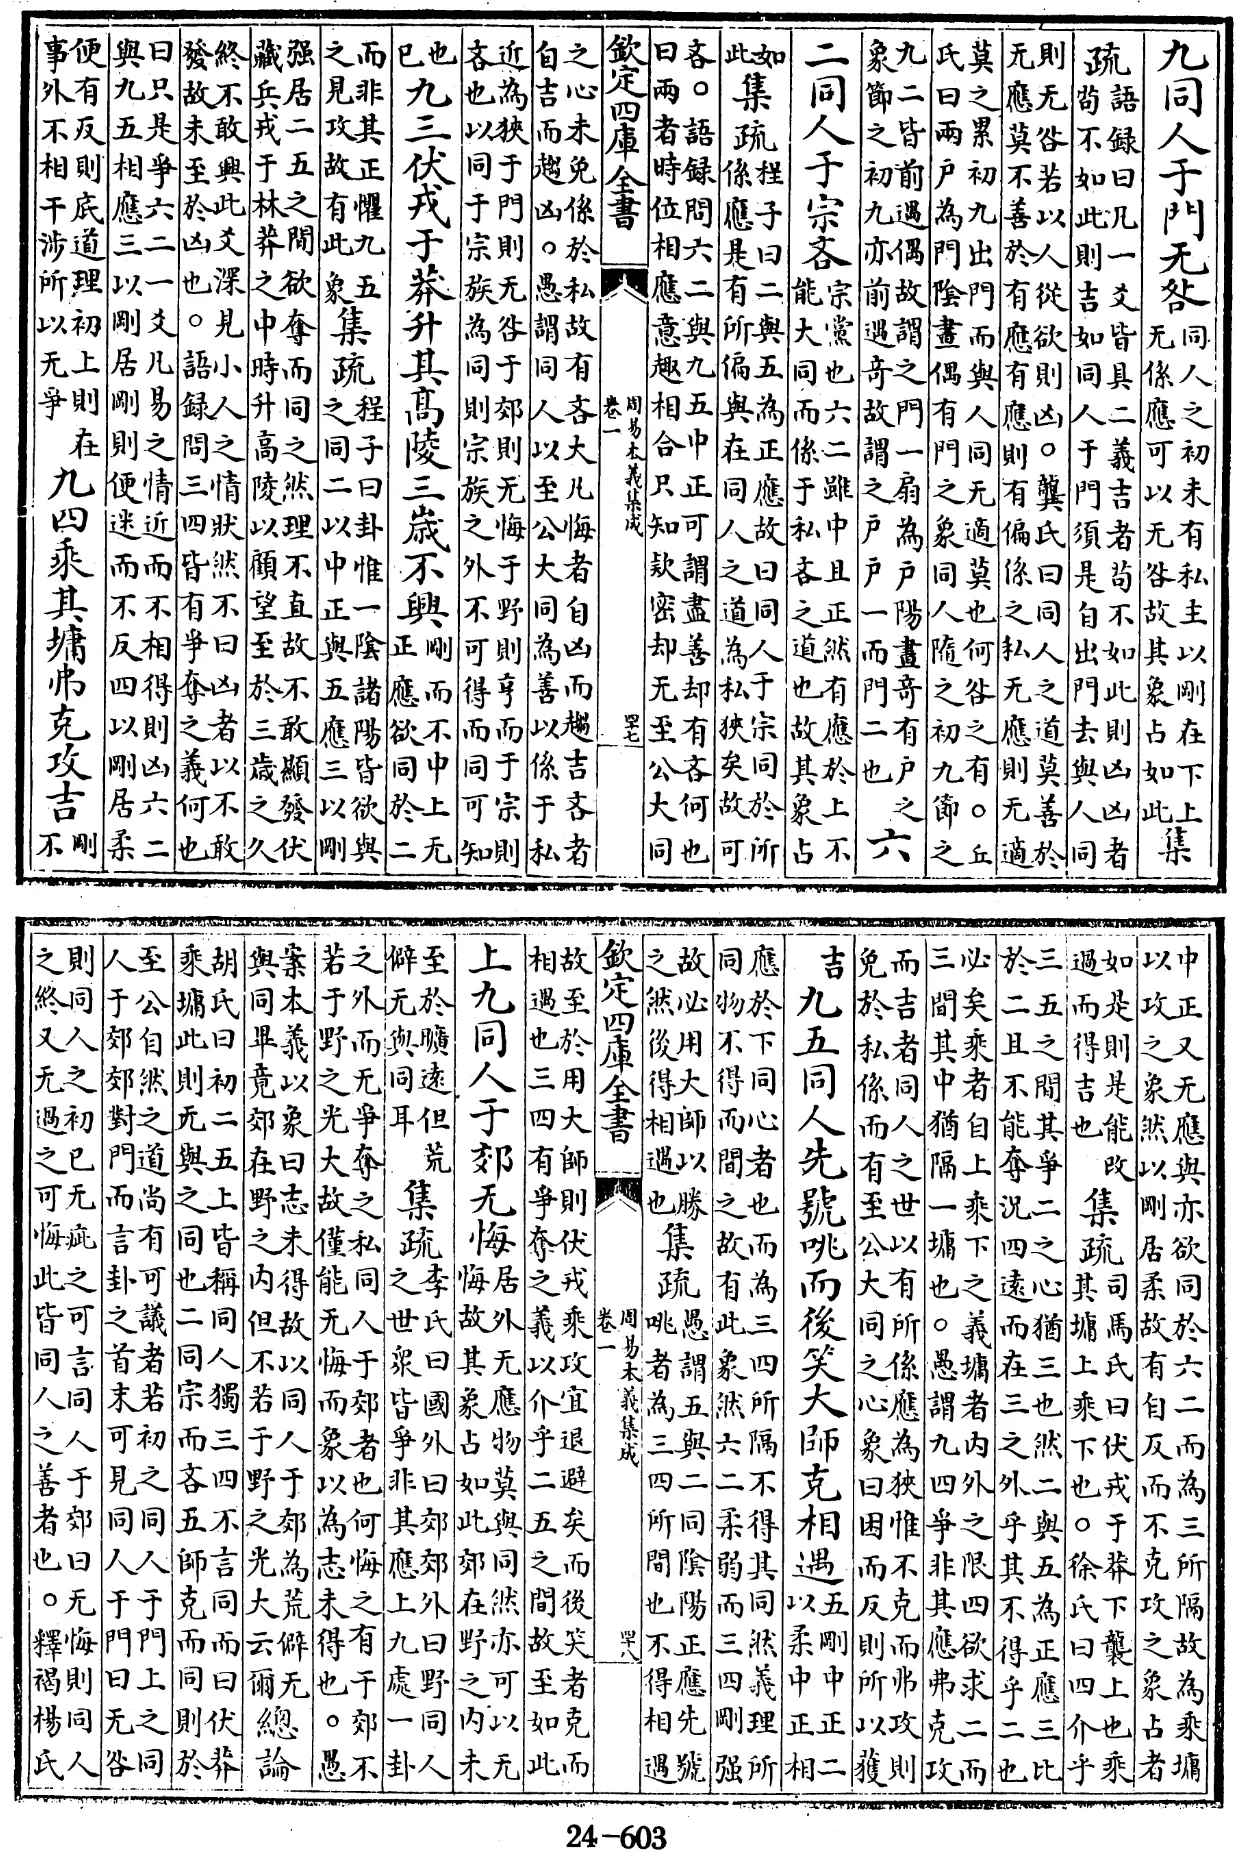 九同人于門无咎
同人之初未有私主以剛在下上
无係應可以无咎故其象占如此
集
疏
語録曰凡一爻皆具二義吉者茍不如此則凶凶者
茍不如此則吉如同人于門須是自出門去與人同
則无咎若以人從欲則凶○龔氏曰同人之道莫善於
无應莫不善於有應有應則有偏係之私无應則无適
莫之累初九出門而與人同无適莫也何咎之有○丘
氏曰兩户為門陰畫偶有門之象同人隨之初九節之
九二皆前遇偶故謂之門一扇為户陽畫竒有户之
象節之初九亦前遇竒故謂之户户一而門二也
六
二同人于宗吝
宗黨也六二雖中且正然有應於上不
能大同而係于私吝之道也故其象占
如
此
集疏
程子曰二與五為正應故曰同人于宗同於所
係應是有所偏與在同人之道為私狹矣故可
吝○語録問六二與九五中正可謂盡善却有吝何也
曰兩者時位相應意趣相合只知欵密却无至公大同
欽定四庫全書
周易本義集成
卷一
四十七
之心未免係於私故有吝大凡悔者自凶而趨吉吝者
自吉而趨凶○愚謂同人以至公大同為善以係于私
近為狹于門則无咎于郊則无悔于野則亨而于宗則
吝也以同于宗族為同則宗族之外不可得而同可知
也
已
九三伏戎于莽升其髙陵三嵗不興
剛而不中上无
正應欲同於二
而非其正懼九五
之見攻故有此象
集疏
程子曰卦惟一陰諸陽皆欲與
之同二以中正與五應三以剛
强居二五之間欲奪而同之然理不直故不敢顯發伏
藏兵戎于林莽之中時升髙陵以顧望至於三嵗之久
終不敢興此爻深見小人之情狀然不曰凶者以不敢
發故未至於凶也○語録問三四皆有爭奪之義何也
曰只是爭六二一爻凡易之情近而不相得則凶六二
與九五相應三以剛居剛則便迷而不反四以剛居柔
便有反則底道理初上則在
事外不相干涉所以无爭
九四乘其墉弗克攻吉
剛
不
中正又无應與亦欲同於六二而為三所隔故為乘墉
以攻之象然以剛居柔故有自反而不克攻之象占者
如是則是能改
過而得吉也
集疏
司馬氏曰伏戎于莽下襲上也乘
其墉上乘下也○徐氏曰四介乎
三五之間其爭二之心猶三也然二與五為正應三比
於二且不能奪況四遠而在三之外乎其不得乎二也
必矣乘者自上乘下之義墉者内外之限四欲求二而
三間其中猶隔一墉也○愚謂九四爭非其應弗克攻
而吉者同人之世以有所係應為狹惟不克而弗攻則
免於私係而有至公大同之心象曰困而反則所以獲
吉
九五同人先號咷而後笑大師克相遇
五剛中正二
以柔中正相
應於下同心者也而為三四所隔不得其同然義理所
同物不得而間之故有此象然六二柔弱而三四剛强
故必用大師以勝
之然後得相遇也
集疏
愚謂五與二同陰陽正應先號
咷者為三四所間也不得相遇
欽定四庫全書
周易本義集成
卷一
四十八
故至於用大師則伏戎乘攻宜退避矣而後笑者克而
相遇也三四有爭奪之義以介乎二五之間故至如此
上九同人于郊无悔
居外无應物莫與同然亦可以无
悔故其象占如此郊在野之内未
至於曠遠但荒
僻无與同耳
集疏
李氏曰國外曰郊郊外曰野同人
之世衆皆爭非其應上九處一卦
之外而无爭奪之私同人于郊者也何悔之有于郊不
若于野之光大故僅能无悔而象以為志未得也○愚
案本義以象曰志未得故以同人于郊為荒僻无
與同畢竟郊在野之内但不若于野之光大云爾
總論
胡氏曰初二五上皆稱同人獨三四不言同而曰伏莽
乘墉此則无與之同也二同宗而吝五師克而同則於
至公自然之道尚有可議者若初之同人于門上之同
人于郊郊對門而言卦之首末可見同人于門曰无咎
則同人之初已无疵之可言同人于郊曰无悔則同人
之終又无過之可悔此皆同人之善者也○釋褐楊氏
24-603